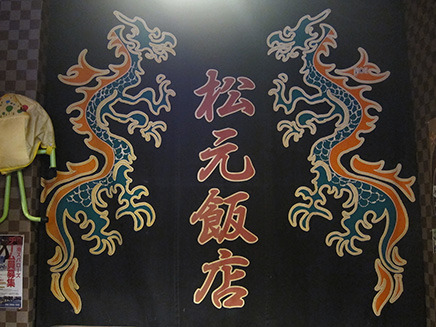 松元飯店